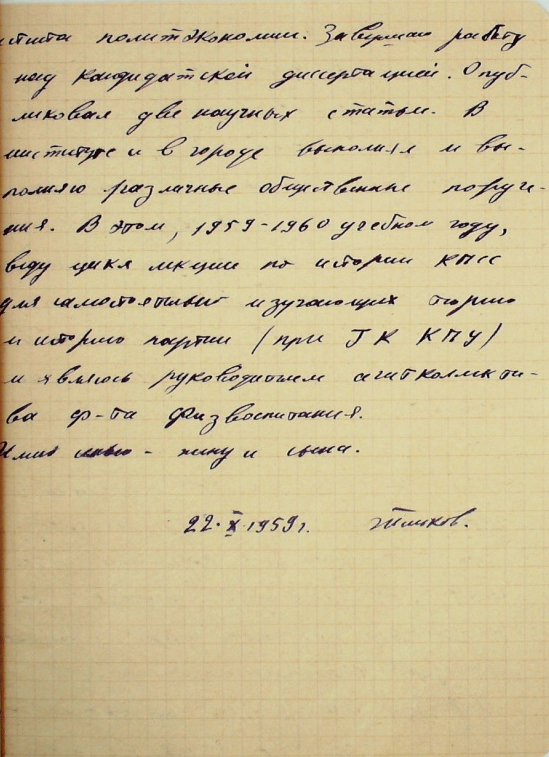 политэкономии. Завершаю работу
над кандидатской диссертацией. Опуб-
ликовал две научных статьи. В
институте и в городе выполнял и вы-
полняю различные общественные поруче-
ния. В этом, 1959-1960 учебном году,
веду цикл лекции по истории КПСС
для самостоятельно изучающих теорию
и историю партии (при ГК КПУ)
и являюсь руководителем агитколлекти-
ва ф-та физвоспитания.
Имею семью - жену и сына.
22.X.1959г.